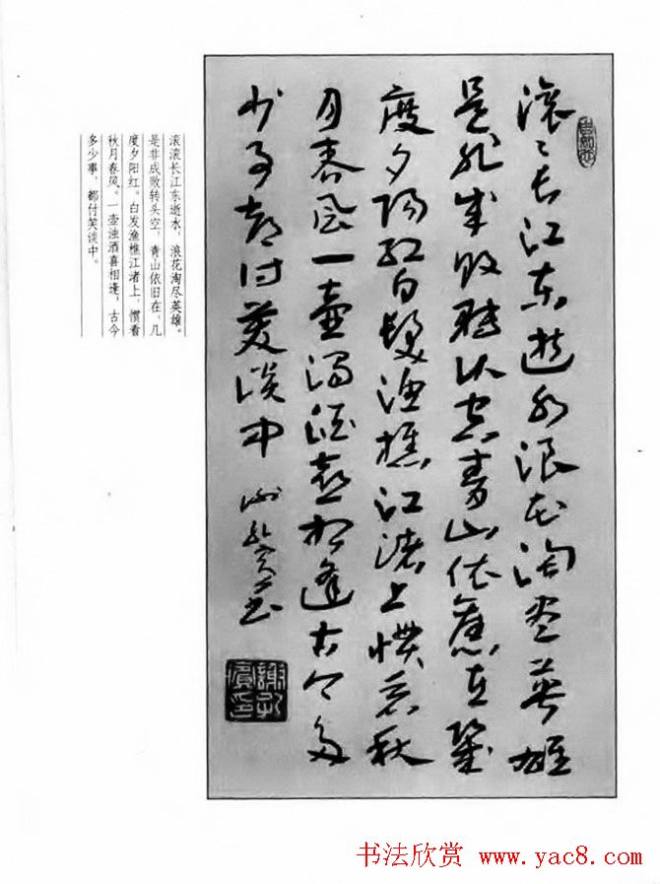 滚〻长江东逝水浪花淘尽英雄
是非成败转头空青山依舊在几
度夕阳红白髮渔樵江渚上惯看秋
月春风一壶浊酒喜相逢古今多
少事都付笑谈中 谢孔宾书
謝孔賓印
滚滚长江东逝水，浪花淘尽英雄。
是非成败转头空，青山依旧在，几
度夕阳红。白发渔樵江渚上，惯看
秋月春风。一壶浊酒喜相逢，古今
多少事，都付笑谈中。
书法欣赏 www.yac8.com